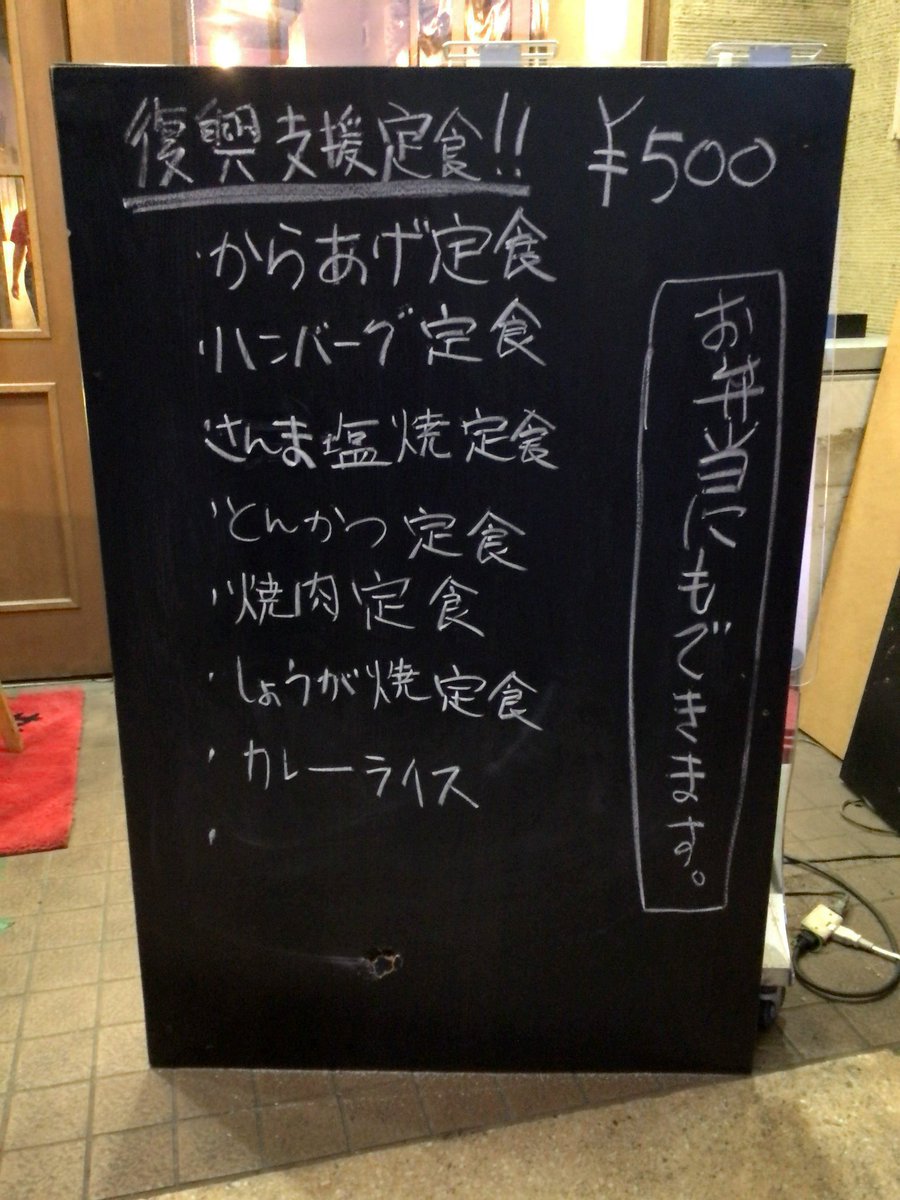 復興支援定食!! ¥500
・からあげ定食
・ハンバーグ定食
・さんま塩焼定食
・とんかつ定食
・焼肉定食
・しょうが焼定食
・カレーライス
・
お弁当にもできます。